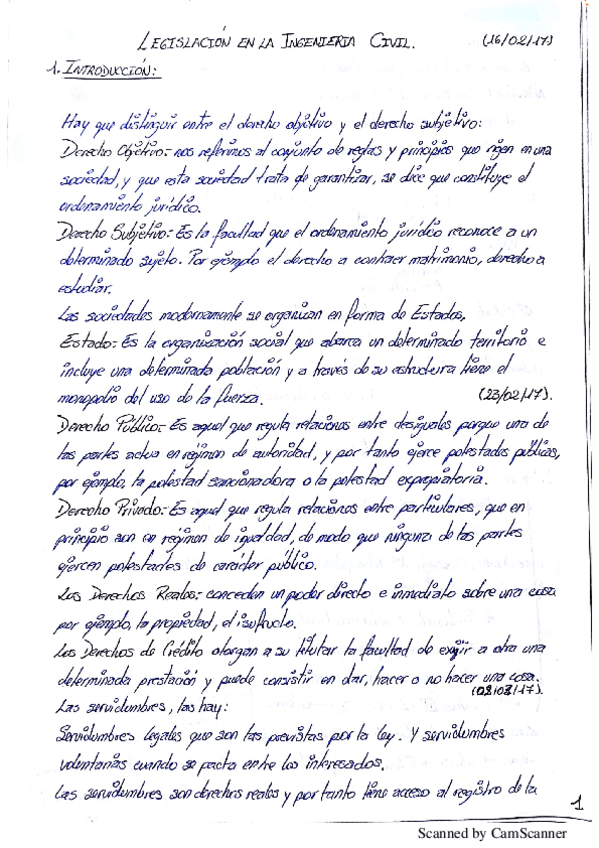 LEGISLACIÓN EN LA INGENIERIA CIVIL. (16/02/17)
1. INTRODUCCIÓN:
Hay que distinguir entre el derecho objetivo y el derecho subjetivo:
Derecho Objetivo: nos referimos al conjunto de reglas y principios que rigen en una
sociedad, y que esta sociedad trata de garantizar, se dice que constituye el
ordenamiento jurídico.
Derecho Subjetivo: Es la facultad que el ordenamiento jurídico reconoce a un
determinado sujeto. Por ejemplo el derecho a contraer matrimonio, derecho a
estudiar.
Las sociedades modernamente se organizan en forma de Estados.
Estado: Es la organización social que abarca un determinado territorio e
incluye una determinada población y a través de su estructura tiene el
monopolio del uso de la fuerza. (23/02/17).
Derecho Público: Es aquel que regula relaciones entre desiguales porque una de
las partes actua en régimen de autoridad, y por tanto ejerce potestades públicas,
por ejemplo, la potestad sancionadora o la potestad expropiatoria.
Derecho Privado: Es aquel que regula relaciones entre particulares, que en
principio son en régimen de igualdad, de modo que ninguna de las partes
ejercen potestades de carácter público.
Los Derechos Reales: conceden un poder directo e inmediato sobre una cosa
por ejemplo, la propiedad, el
Los Derechos de Crédito otorgan a su titular la facultad de exigir a otra una
determinada prestación y puede consistir en dar, hacer o no hacer una cosa.
(02/03/17).
Las servidumbres, las hay:
Servidumbres legales que son las previstas por la ley. Y servidumbres
voluntarias cuando se pacta entre los interesados.
Las servidumbres son derechos reales y por tanto tiene acceso al registro de la
1
Scanned by CamScanner